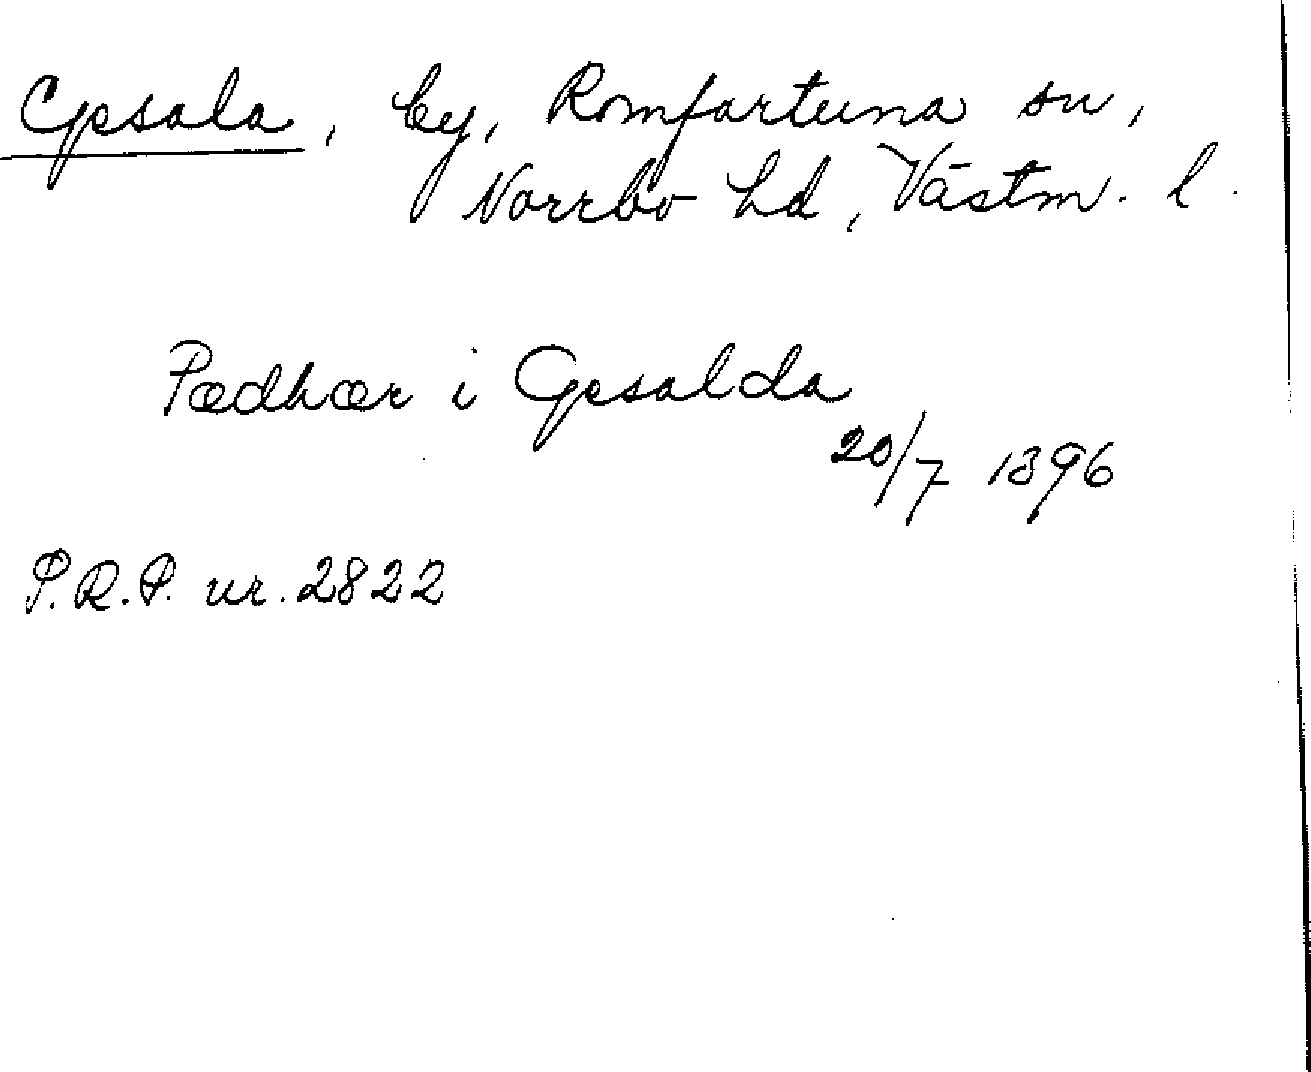 Gesala, by, Romfartuna sn,
Norrbo hd, Västm. l.
Pædhær i Gesalda
20/7 1396
P.R.P. nr. 2822